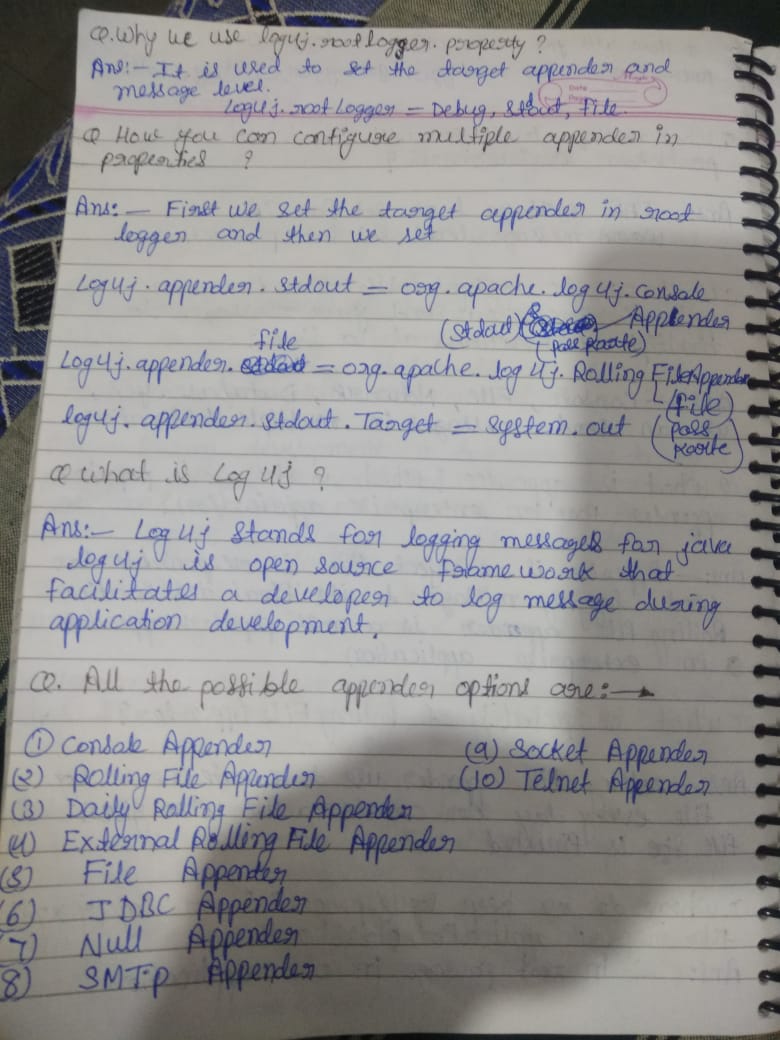 Q. Why we use log4j.rootlogger.property?
Ans:- It is used to set the target appender and
message level.
Log4j.rootLogger = Debug, Stdout, file.
Q How you can configure multiple appender in
properties ?
Ans:- First we set the target appender in root
logger and then we set
Log4j.appender.stdout = org.apache.log4j.console
Appender
(stdout)
(pass Raoute)
file
Log4j.appender. = org.apache.log4j.Rolling FileAppender
(file)
log4j.appender.stdout.Target = System.out
(pass
Raoute)
Q What is Log4J ?
Ans:- Log4j stands for logging messages for java
log4j is open source frame work that
facilitates a developer to log message during
application development.
Q. All the possible appender options are:→
① Console Appender
(2) Rolling File Appender
(3) Daily Rolling File Appender
(4) External Rolling File Appender
(5) File Appender
(6) JDBC Appender
(7) Null Appender
(8) SMTP Appender
(9) Socket Appender
(10) Telnet Appender